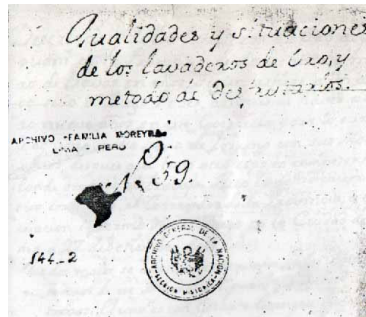 Qualidades y situaciones
de los lavaderos de Oro, y
metodo de disfrutarlos.
ARCHIVO FAMILIA MOREYRA
LIMA - PERU
159.
144-2
ARCHIVO GENERAL DE LA NACION
SECCION HISTORICA